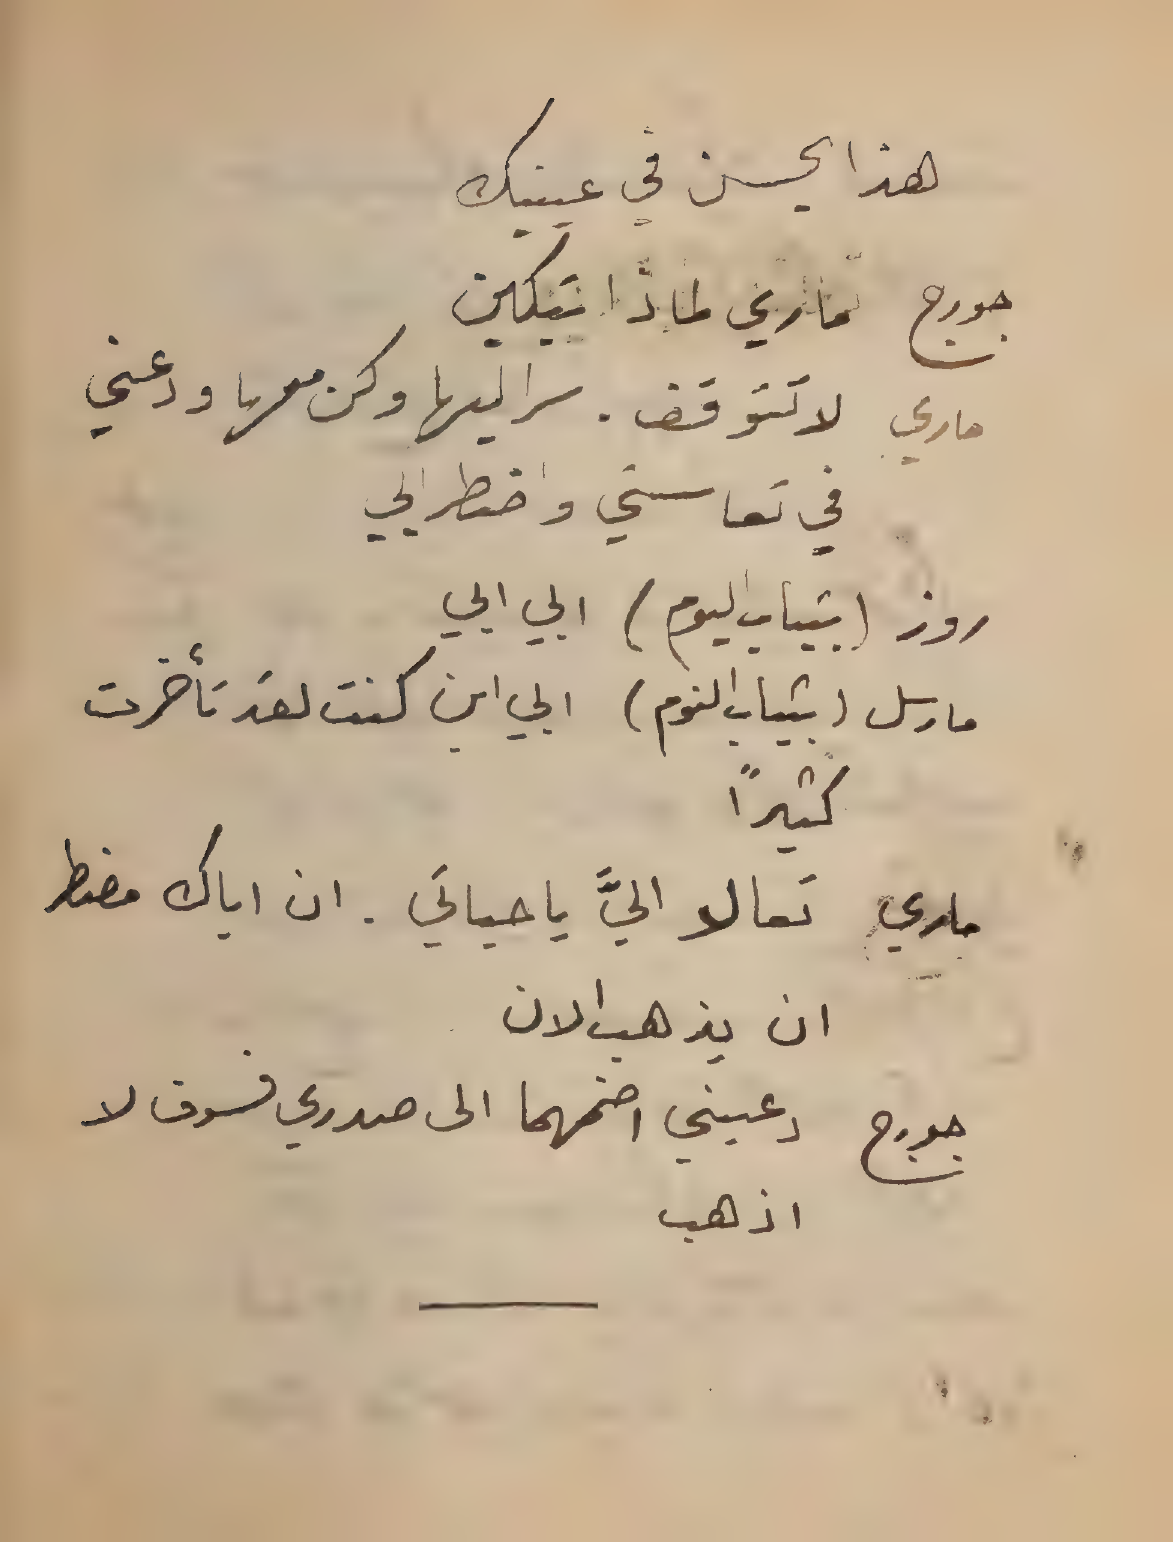 هذا يحسن في عينيك
جورج ماري لماذا تبكين
ماري لا تتوقف . سر اليها وكن معها ودعني
في تعاستي واضطرابي
روز (بثياب اليوم) ابي ابي
مارسل (بثياب النوم) ابي اين كنت لقد تأخرت
كثيرًا
ماري تعالا اليَّ يا حياتي . ان اباك مضطر
ان يذهب الان
جورج دعيني اضمهما الى صدري فسوف لا
اذهب